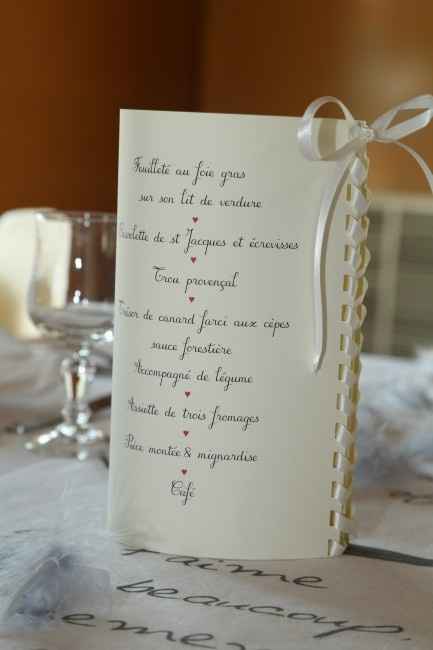 Feuilleté au foie gras
sur son lit de verdure
de st Jacques et écrevisses
Trou provençal
Trésor de canard farci aux cèpes
sauce forestière
Accompagné de légume
Assiette de trois fromages
Pièce montée & mignardise
Café
j'aime
beaucoup,